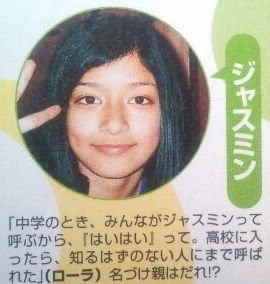 ジャスミン
「中学のとき、みんながジャスミンって
呼ぶから、『はいはい』って。高校に入
ったら、知るはずのない人にまで呼ば
れた」(ローラ) 名づけ親はだれ!?